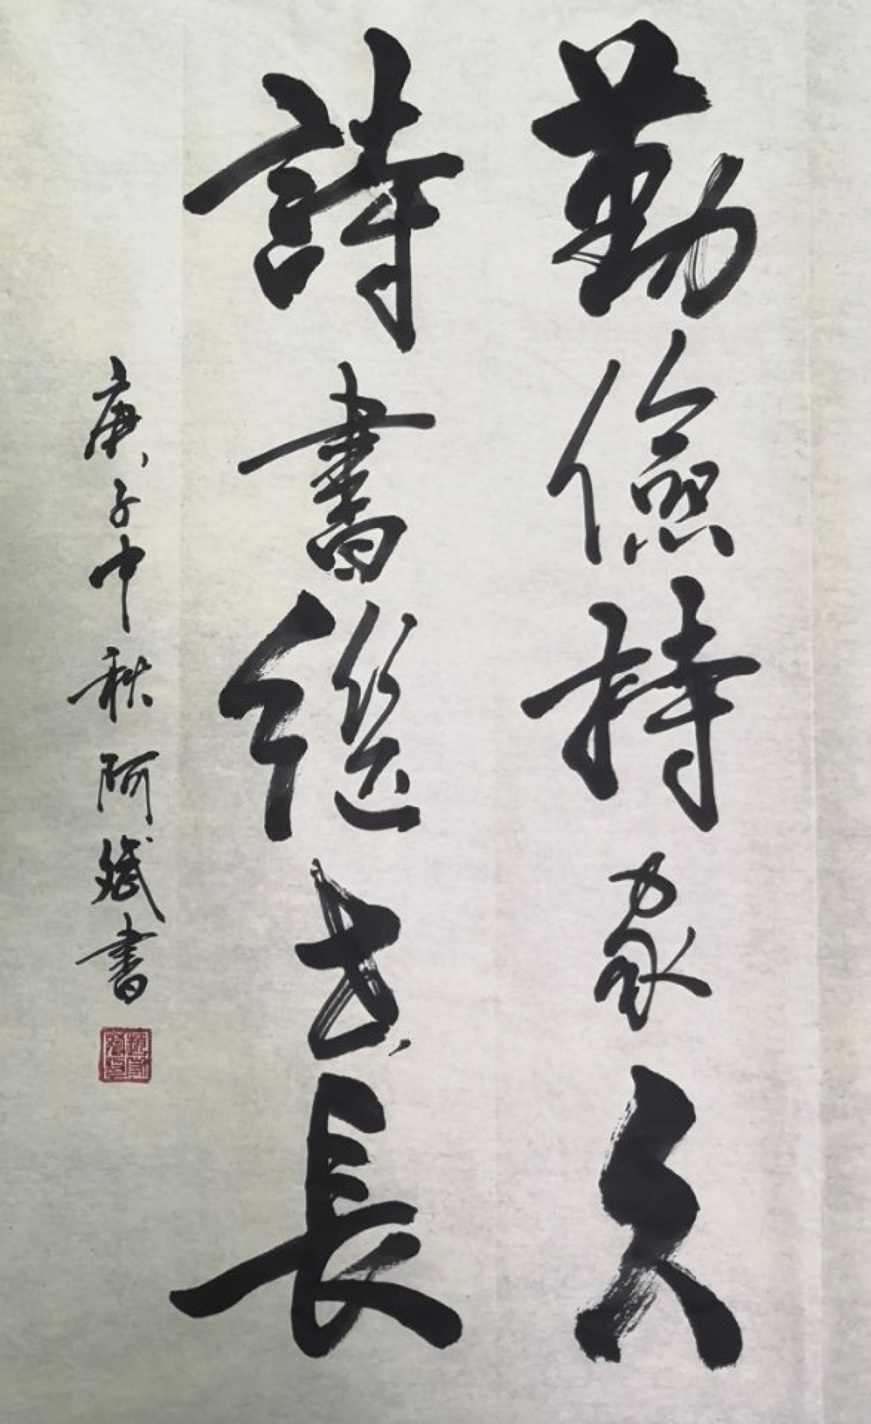 勤儉持家久
詩書継世長
庚子中秋阿斌書